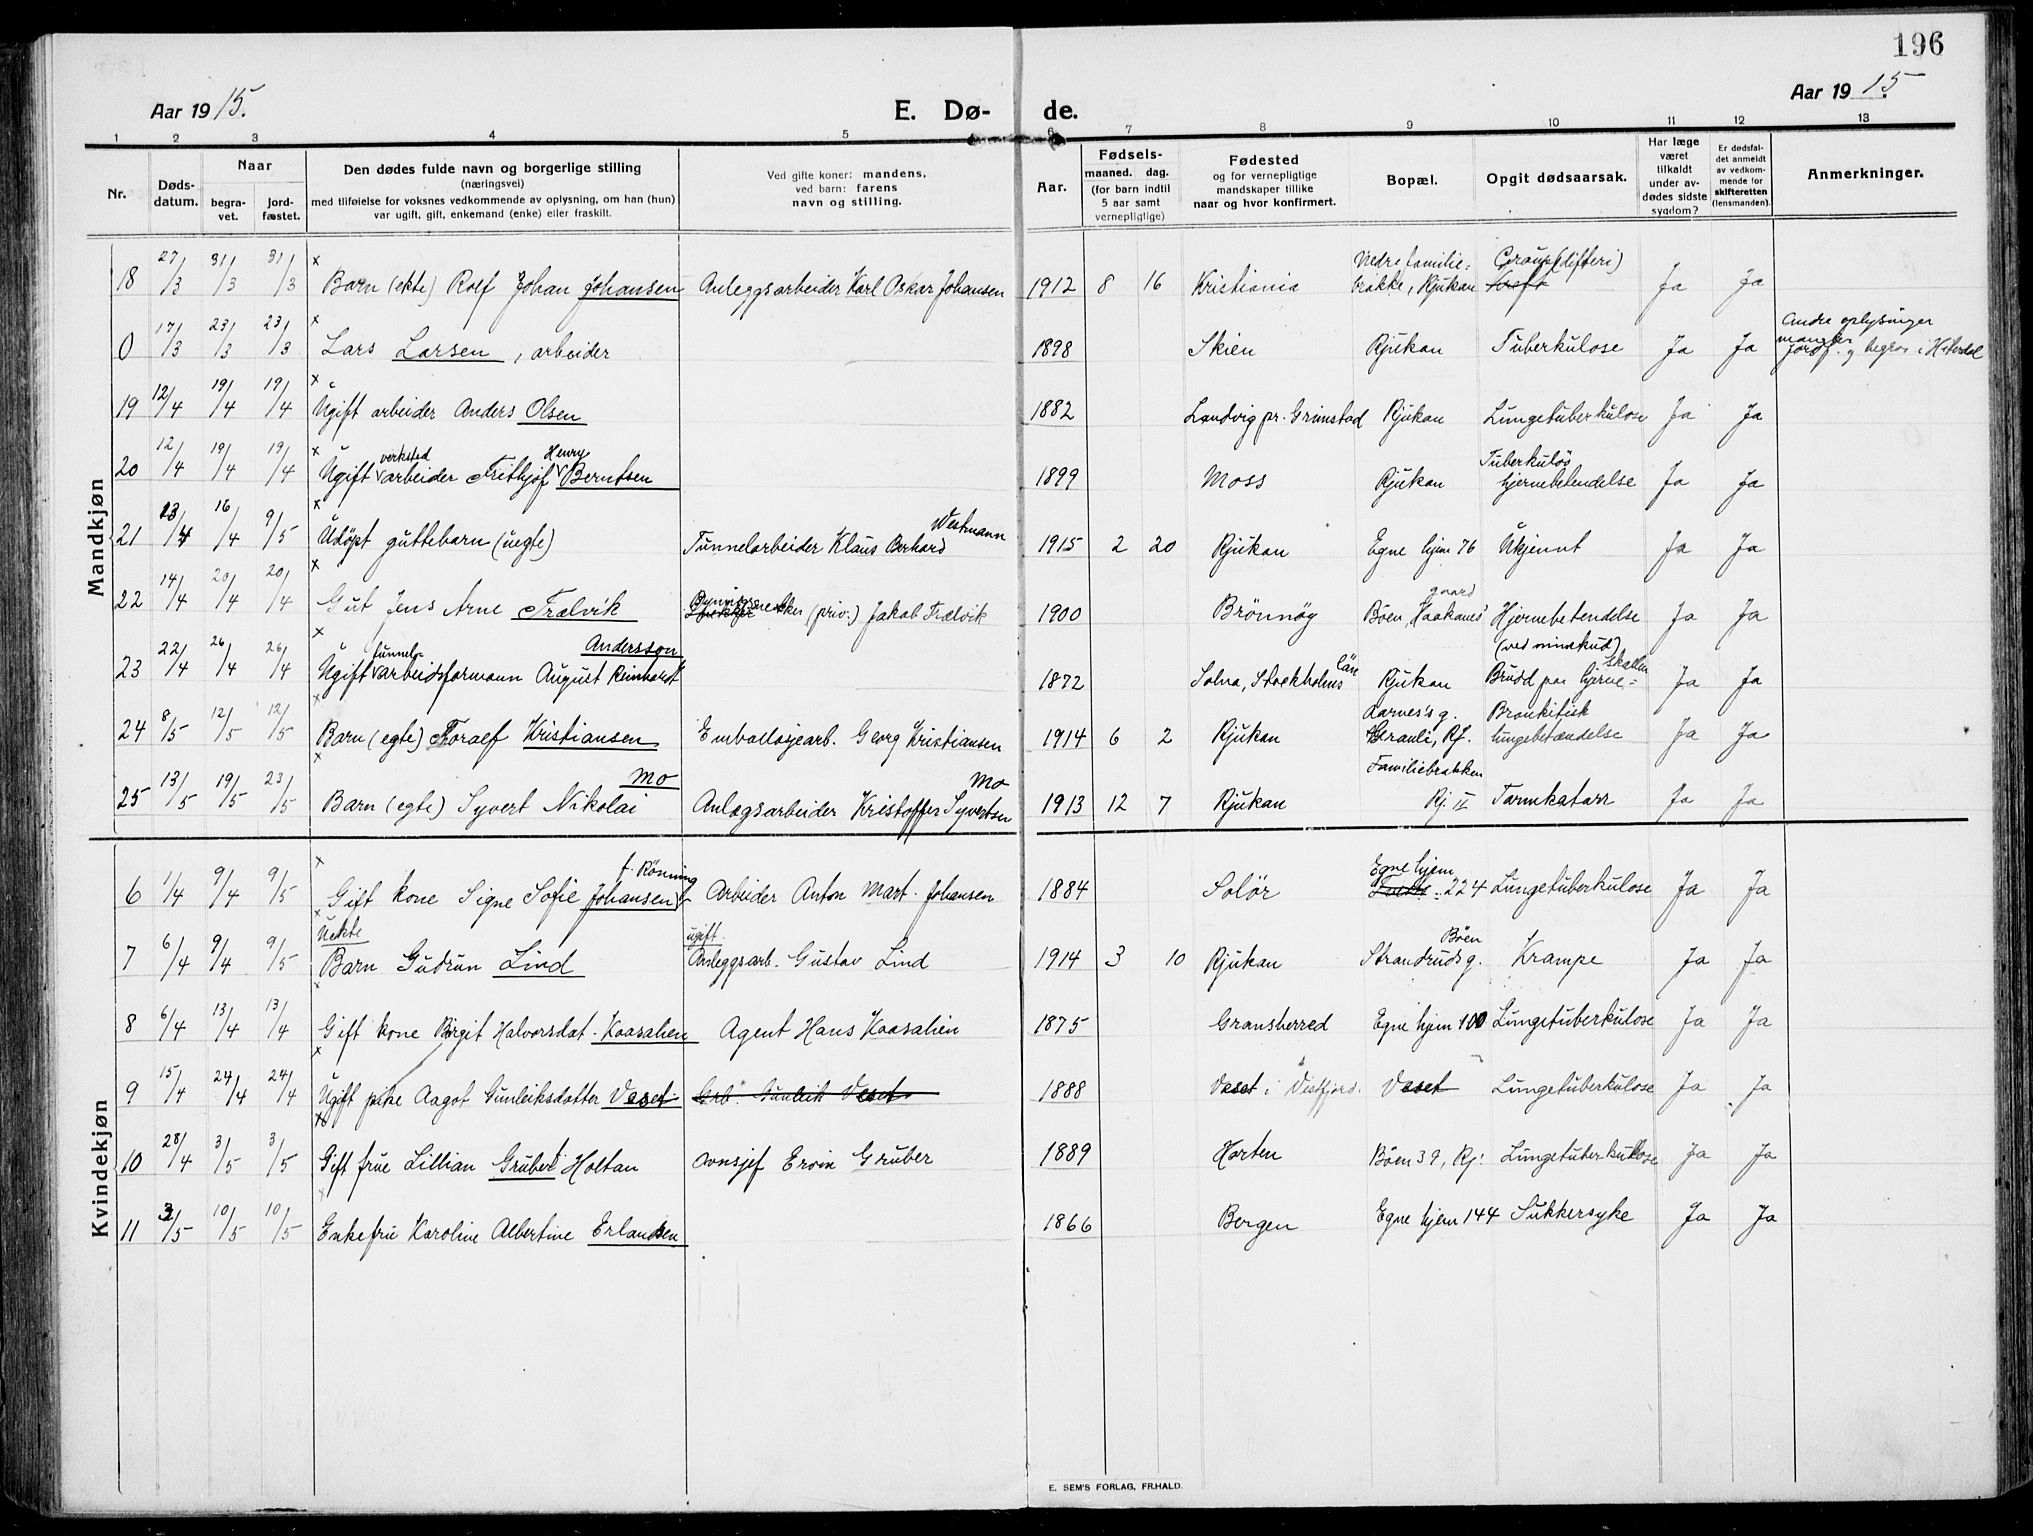 196
Aar 1915. E. Dø- de. Aar 1915.
1 2 3 4 5 6 7 8 9 10 11 12 13
Nr.
Døds-
datum.
Naar
begra-
vet.
jord-
fæstet.
Den dødes fulde navn og borgerlige stilling
(næringsvei)
med tilføielse for voksnes vedkommende av oplysning, om han (hun)
var ugift, gift, enkemand (enke) eller fraskilt.
Ved gifte koner: mandens,
ved barn: farens
navn og stilling.
Aar.
Fødsels-
maaned. dag.
(for barn indtil
5 aar samt
vernepligtige)
Fødested
og for vernepligtige
mandskaper tillike
naar og hvor konfirmert.
Bopæl.
Opgit dødsaarsak.
Har læge
været
tilkaldt
under av-
dødes sidste
sygdom?
Er dødsfal-
det anmeldt
av vedkom-
mende for
skifteretten
(lensmanden).
Anmerkninger.
Mandkjøn
18 27/3 31/3 31/3 x Barn (ekte) Rolf Johan Johansen Anleggsarbeider Karl Oskar Johansen 1912 8 16 Kristiania Nedre familie= brakke, Rjukan Croup (difteri) Ja Ja
0 17/3 23/3 23/3 x Lars Larsen, arbeider 1898 Skien Rjukan Tuberkulose Ja Ja Andre oplysninger mangler Jordf. og begrav. i Hiterdal
19 12/4 19/4 19/4 x Ugift arbeider Anders Olsen 1882 Landvig pr. Grimstad Rjukan Lungetuberkulose Ja Ja
20 12/4 19/4 19/4 x Ugift verksted arbeider Frithjof Henry Berntsen 1899 Moss Rjukan Tuberkuløs hjernebetendelse Ja Ja
21 13/4 16/4 9/5 x Udøpt guttebarn (uegte) Tunnelarbeider Klaus Berhard Westmann 1915 2 20 Rjukan Egne hjem 76 Ukjennt Ja Ja
22 14/4 20/4 20/4 x Gut Jens Arne Trælvik (priv.) Jakob Trælvik 1900 Brönnöy Böen, Haakanes gaard Hjernebetendelse Ja Ja
23 22/4 26/4 26/4 x Ugift tunnel- arbeidsformann August Reinhardt Andersson 1872 Solna, Stockholms län Rjukan (ved mineskud) Brudd paa hjerne= skallen Ja Ja
24 8/5 12/5 12/5 x Barn (egte) Toralf Kristiansen Emballasjearb. Georg Kristiansen 1914 6 2 Rjukan Aarnes's g. Rj. Bronkitisk lungebetændelse Ja Ja
25 13/5 19/5 23/5 x Barn (egte) Syvert Nikolai Mo Anlægsarbeider Kristoffer Syvertsen Mo 1913 12 7 Rjukan Familiebrakken Rj. II Tarmkatarr Ja Ja
Kvindekjøn
6 1/4 9/4 9/5 x Gift kone Signe Sofie Johansen f. Rönning Arbeider Anton Mart. Johansen 1884 Solör Egne hjem 224 Lungetuberkulose Ja Ja
7 6/4 9/4 9/5 x Uekte Barn Gudrun Lind ugift. Anleggsarb. Gustav Lind 1914 3 10 Rjukan Strandruds g. Böen Krampe Ja Ja
8 6/4 13/4 13/4 x Gift kone Birgit Halvorsdat. Kaasalien Agent Hans Kaasalien 1875 Gransherred Egne hjem 100 Lungetuberkulose Ja Ja
9 15/4 24/4 24/4 x Ugift pike Aagot Gunleiksdotter Vaset Grb. Gunleik Vaset 1888 Vaset i Vestfjord. Vaset Lungetuberkulose Ja Ja
10 28/4 3/5 3/5 x Gift frue Lillian Gruber f. Holtan ovnsjef Ervin Gruber 1889 Horten Böen 39, Rj. Lungetuberkulose Ja Ja
11 3/5 10/5 10/5 x Enkefru Karoline Albertine Erlandsen 1866 Bergen Egne hjem 144 Sukkersyke Ja Ja
E. SEM'S FORLAG, FR.HALD.